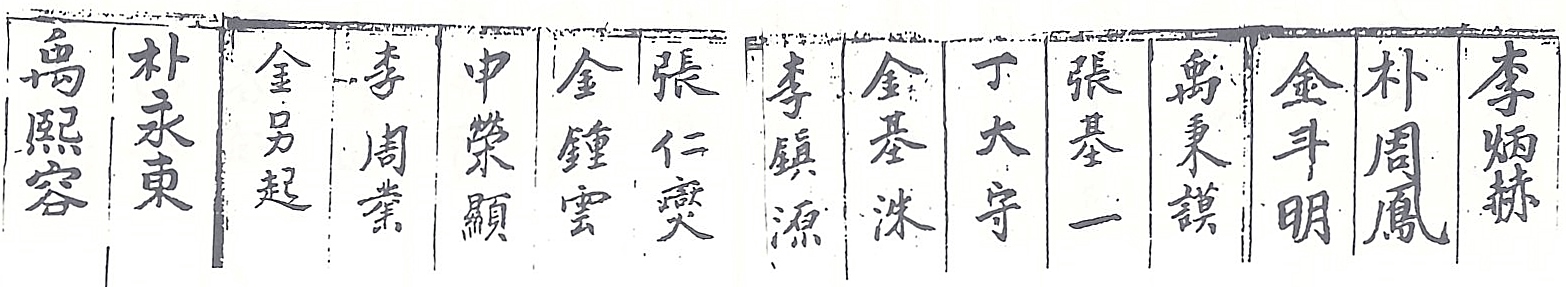 李炳赫
朴周鳳
金斗明
禹秉謨
張基一
丁大守
金基洙
李鎭源
張仁燮
金鍾雲
申榮顯
李周業
金另起
朴永東
禹熙容